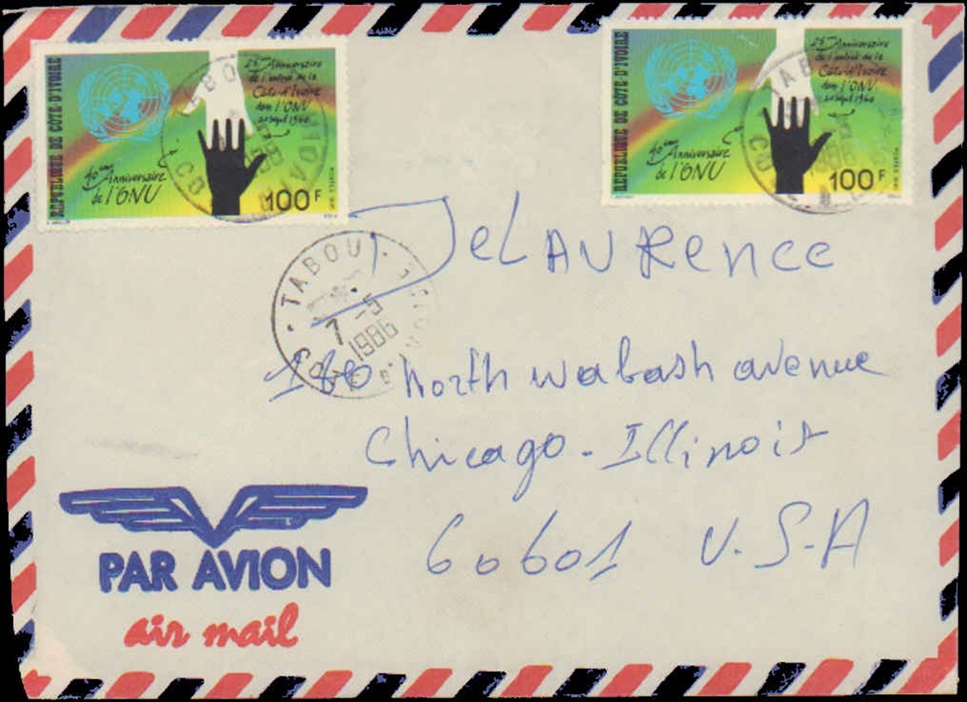 REPUBLIQUE DE COTE-D'IVOIRE
25e Anniversaire
de l'entrée de la
Côte-d'Ivoire
dans l'ONU
20 sept 1960
40ème Anniversaire
de l'ONU
100F
REPUBLIQUE DE COTE-D'IVOIRE
25e Anniversaire
de l'entrée de la
Côte-d'Ivoire
dans l'ONU
20 sept 1960
40ème Anniversaire
de l'ONU
100F
TABOU
7-5
1986
DeLAURence
180 North wabash avenue
Chicago - Illinois
60601 U.S.A
PAR AVION
air mail